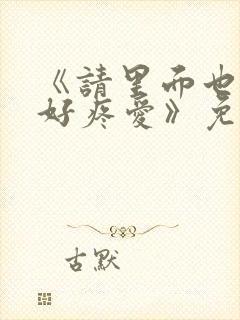 《請里而也
好疼愛》免
古默